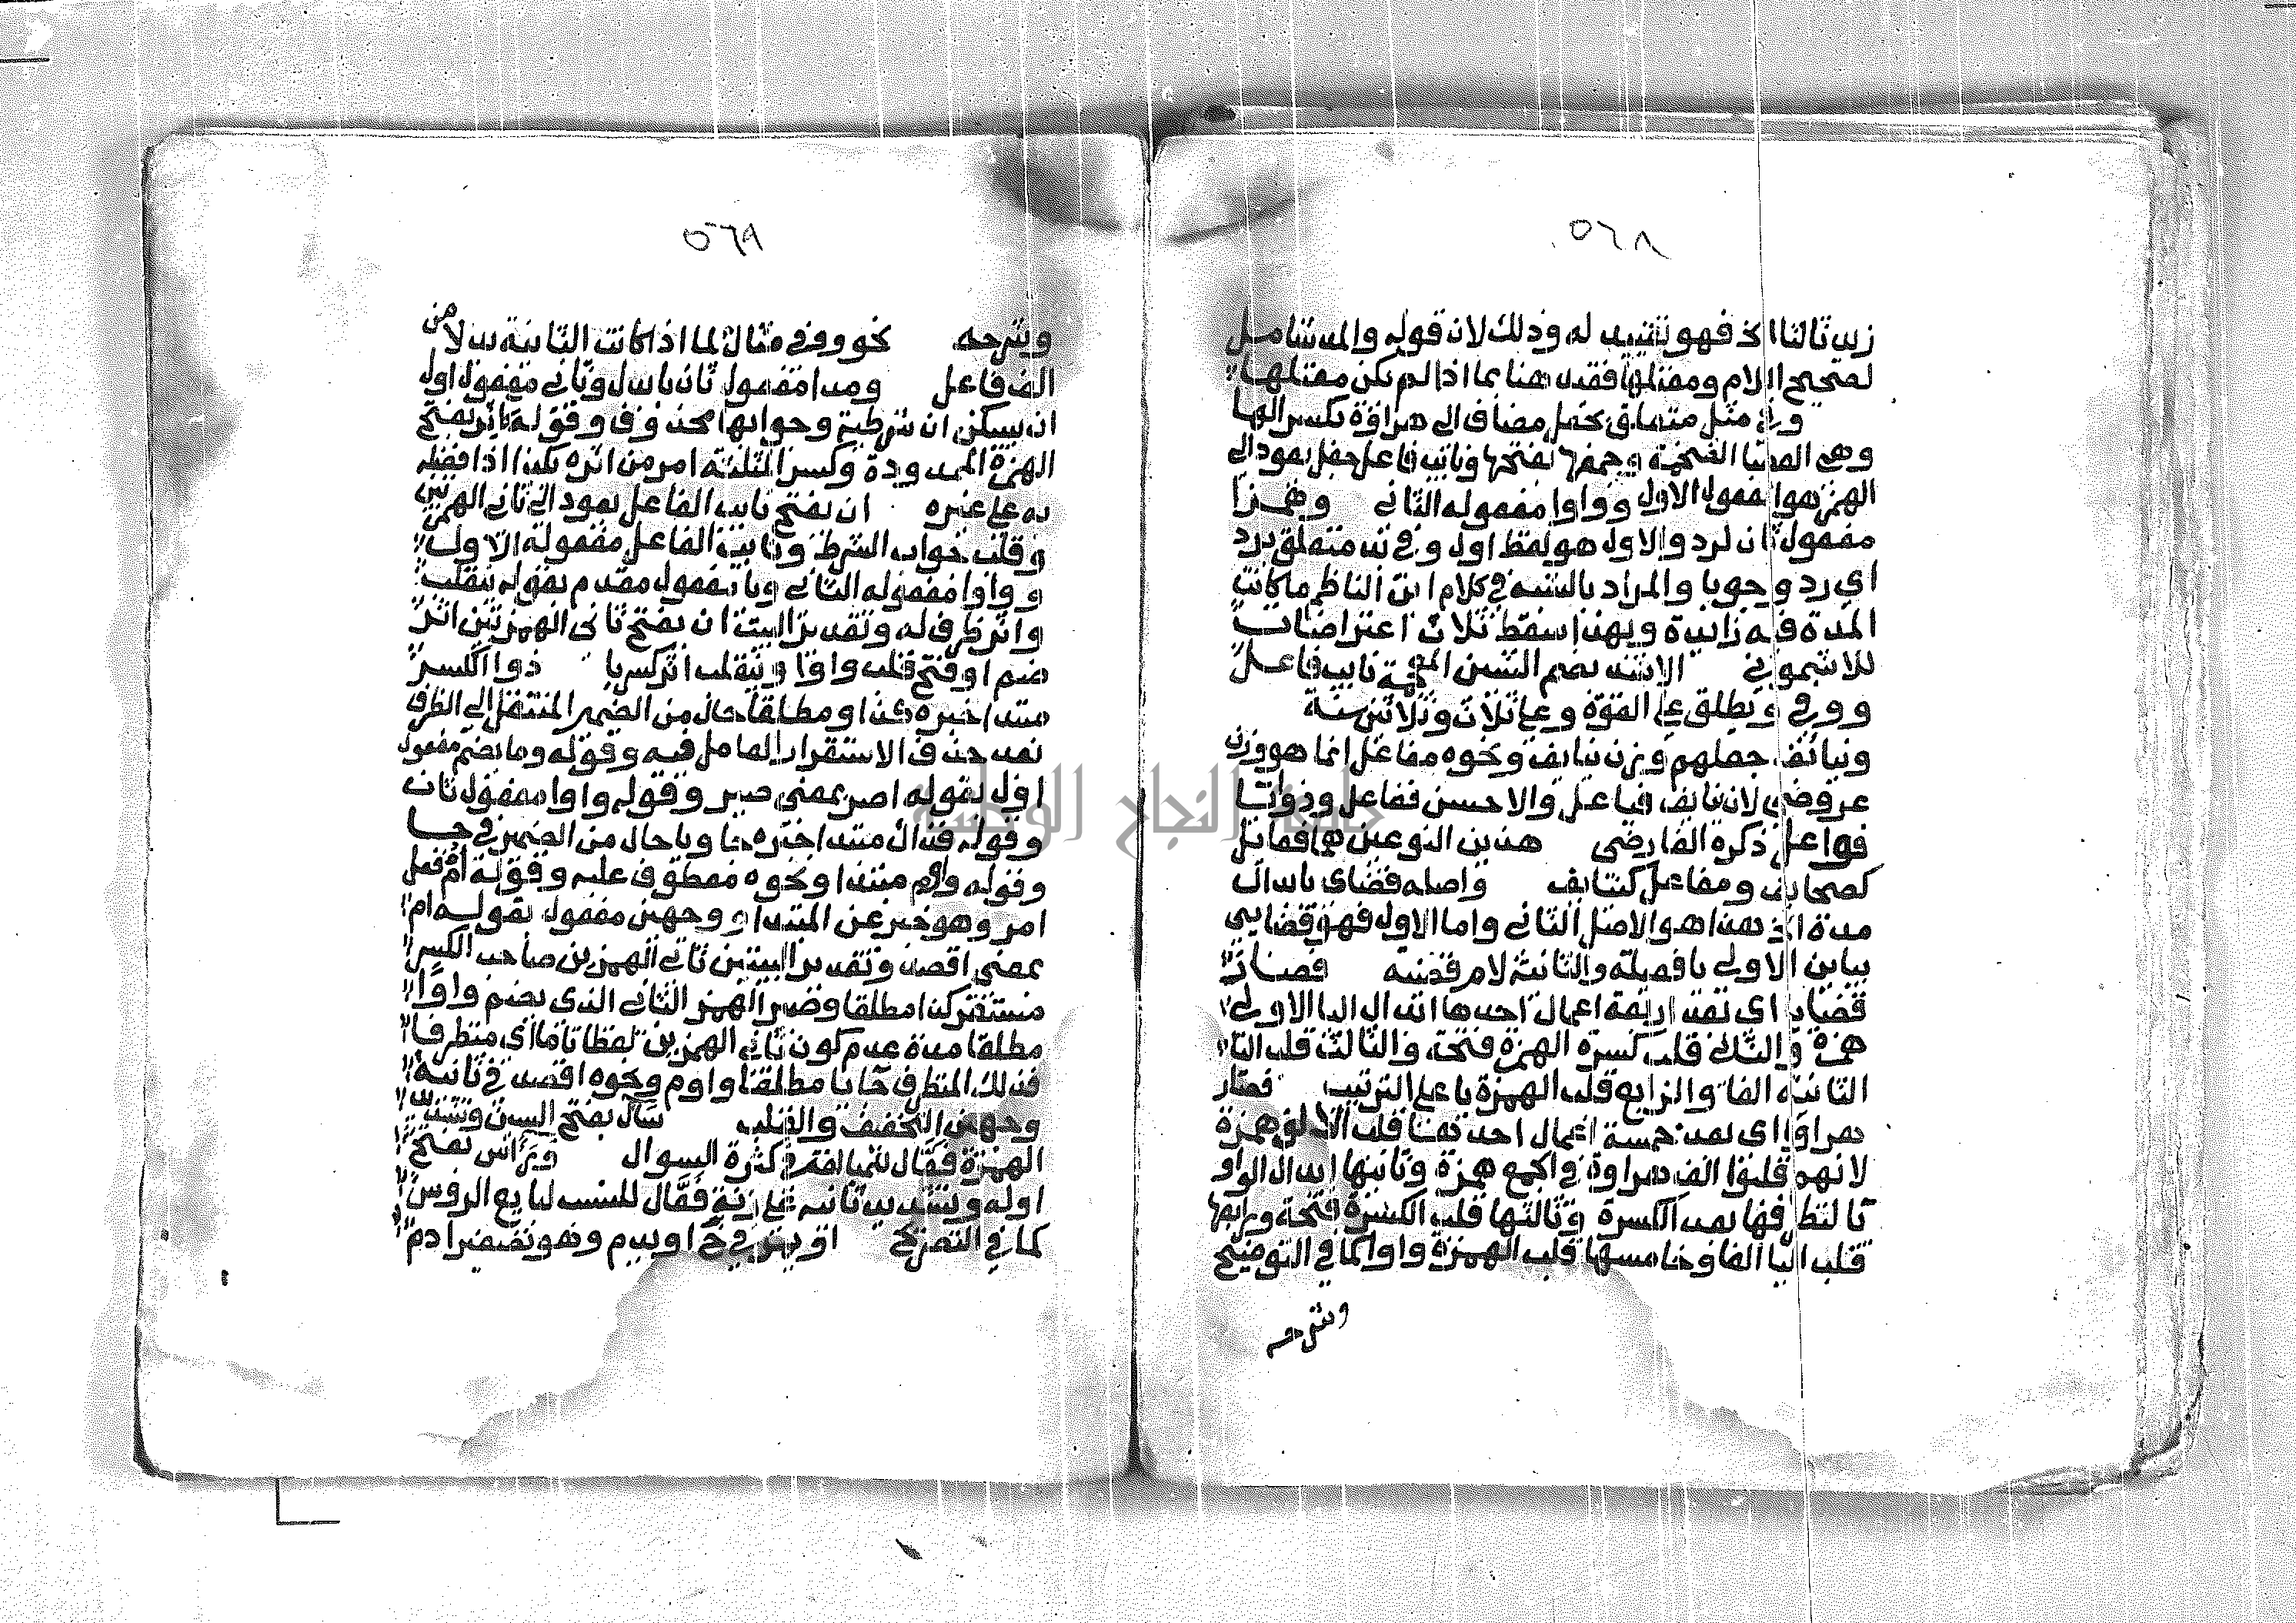 ٥٦٨
زيد ثالثا الخ فهو تقييد له وذلك لان قوله والمد شامل
لصحيح اللام ومعتلها فقيده هنا بما اذا لم يكن معتلها
وفي مثل متعلق بجعل مضاف الى هراوة بكسر الها
وهي العصا الضخمة وجمعها بفتحها ونايب فاعل جعل يعود الى
الهمز هو المفعول الاول وواوا مفعوله الثاني وهمزا
مفعول ثان لرد والاول هو لفظ اول وفي بدء متعلق برد
اي رد وجوبا والمراد بالشبه في كلام ابن الناظم ما كانت
المدة فيه زايدة وبهذا سقط ثلاث اعتراضات
للاشموني الاشد بضم الشين المعجمة نايب فاعل
ووفي ويطلق على القوة وعلى ثلاث وثلاثين سنة
ونيائف جعلهم وزن نيايف ونحوه مفاعل انما هو وزن
عروضي لان نيايف فياعل والاحسن فعاعل وذوايب
فواعل ذكره الفارضي هذين النوعين هما فعايل
كصحايف ومفاعل كنيايف واصله قضاي بابدال
مدة الخ هذا هو الاصل الثاني واما الاول فهو قضايي
بيايين الاولى يا فعيلة والثانية لام قضية فصار
قضايا اي بعد اربعة اعمال احدها ابدال اليا الاولى
همزة والثاني قلب كسرة الهمزة فتحة والثالث قلب اليا
الثانية الفا والرابع قلب الهمزة يا على الترتيب فصار
هراوا اي بعد خمسة اعمال احدها قلب الالف همزة
لانهم قلبوا الف هراوة في الجمع همزة وثانيها ابدال الواو
يا لتطرفها بعد الكسرة وثالثها قلب الكسرة فتحة ورابعها
قلب اليا الفا وخامسها قلب الهمزة واوا كما في التوضيح
وشرحه
٥٦٩
وشرحه نحو ووفي مثال لما اذا كانت الثانية بدلا من
الف فاعل ومدا مفعول ثان بابدل وثاني مفعول اول
ان يسكن ان شرطية وجوابها محذوف وقوله كاثر بفتح
الهمزة الممدودة وكسر المثلثة امر من اثره بكذا اذا فضله
به على غيره ان يفتح نايب الفاعل يعود الى ثاني الهمزتين
وقلب جواب الشرط ونايب الفاعل مفعوله الاول
وواوا مفعوله الثاني ويا مفعول مقدم بقوله ينقلب
واثر ظرف له وتقدير البيت ان يفتح ثاني الهمزتين اثر
ضم او فتح قلب واوا وينقلب اثر كسر يا ذو الكسر
مبتدا خبره كذا ومطلقا حال من الضمير المنتقل الى الظرف
بعد حذف الاستقرار العامل فيه وقوله وما يضم مفعول
اول لقوله اصر بمعنى صير وقوله واوا مفعول ثان
وقوله فذاك مبتدا خبره جا ويا حال من الضمير في جا
وقوله واوم مبتدا ونحوه معطوف عليه وقوله ام فعل
امر وهو خبر عن المبتدا ووجهين مفعول بقوله ام
بمعنى اقصد وتقدير البيتين ثاني الهمزين صاحب الكسر
مستقر كذا مطلقا وصير الهمز الثاني الذي يضم واوا
مطلقا مدة عدم كون ثاني الهمزين لفظا تاما اي متطرفا
فذلك المتطرف جا يا مطلقا واوم ونحوه اقصد في ثانيه
وجهين التخفيف والقلب سآل بفتح السين وتشديد
الهمزة فعّال للمبالغة في كثرة السوال ورآس بفتح
اوله وتشديد ثانيه على زنة فعّال للنسب لبايع الروس
كما في التصريح او يدم وهو تصغير ادم
جامعة النجاح الوطنية